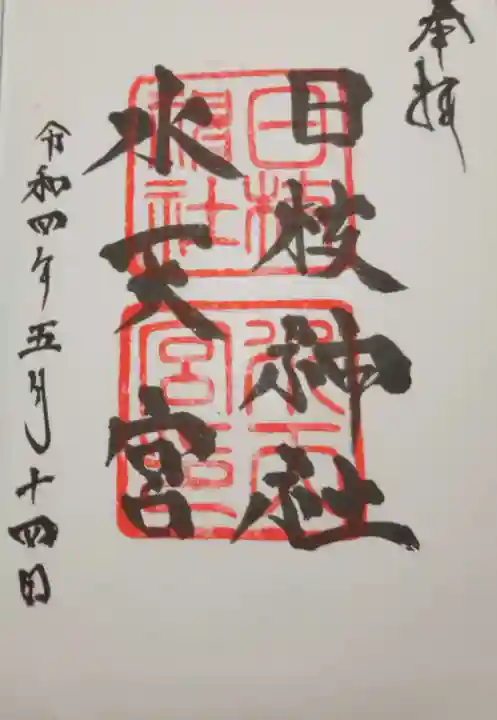 奉拝
日枝神社
水天宮
令和四年五月十四日
日枝
神社
水天
宮